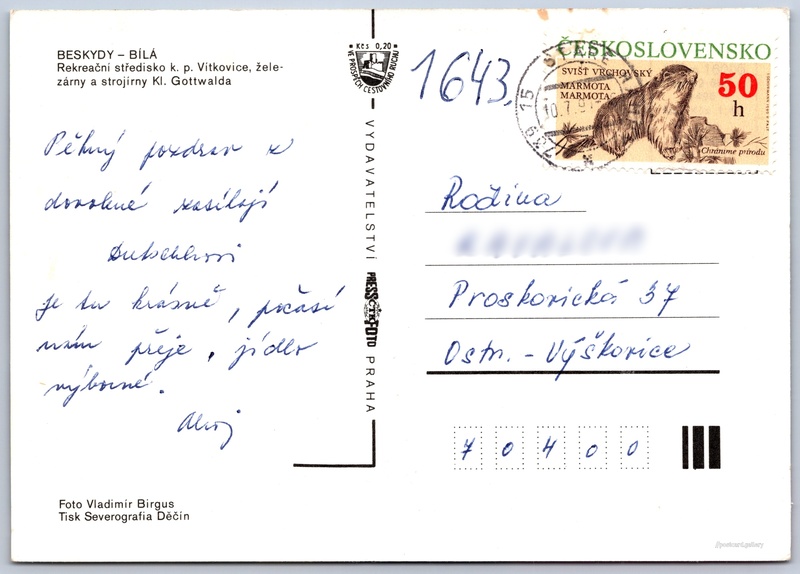 BESKYDY – BÍLÁ
Rekreační středisko k. p. Vítkovice, žele-
zárny a strojírny Kl. Gottwalda
Pěkný pozdrav z
dovolené zasílají
je tu krásně, počasí
nám přeje, jídlo
výborné.
Ahoj
Foto Vladimír Birgus
Tisk Severografia Děčín
Kčs 0,20
VE PROSPĚCH CESTOVNÍHO RUCHU
VYDAVATELSTVÍ
PRESSFOTO
ČTK
PRAHA
1643,
ČESKOSLOVENSKO
SVIŠŤ VRCHOVSKÝ
MARMOTA
MARMOTA
50
h
Chráníme přírodu
10.7.
15
739
Rodina
Proskovická 37
Ostr. - Výškovice
70400
//postcard.gallery